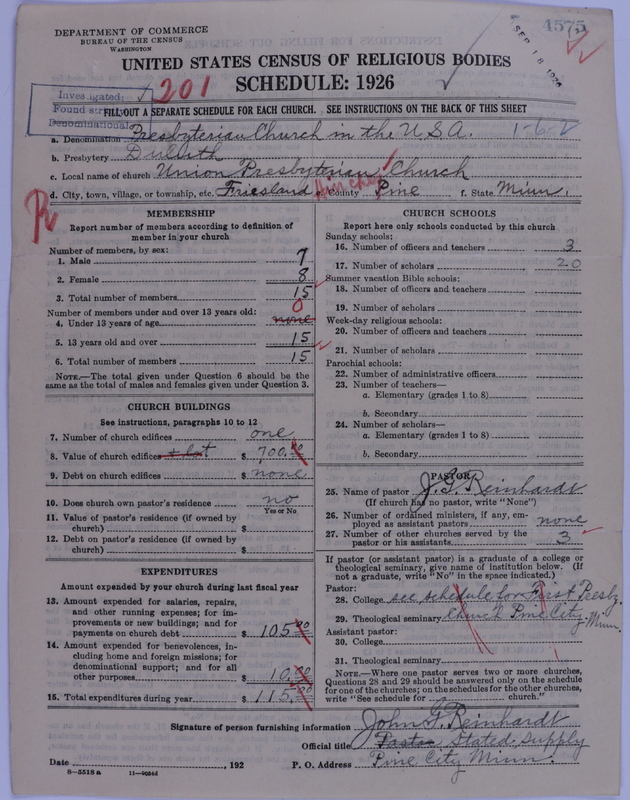 DEPARTMENT OF COMMERCE
BUREAU OF THE CENSUS
WASHINGTON
4575
SEP 18 1926
UNITED STATES CENSUS OF RELIGIOUS BODIES
SCHEDULE: 1926
201
Investigated:
Found
Denominational
FILL OUT A SEPARATE SCHEDULE FOR EACH CHURCH. SEE INSTRUCTIONS ON THE BACK OF THIS SHEET
a. Denomination Presbyterian Church in the U.S.A. 1-6-2
b. Presbytery Duluth
c. Local name of church Union Presbyterian Church
d. City, town, village, or township, etc. Friesland County Pine f. State Minn.
MEMBERSHIP
Report number of members according to definition of
member in your church
Number of members, by sex:
1. Male 7
2. Female 8
3. Total number of members 15
Number of members under and over 13 years old: 0
4. Under 13 years of age none
5. 13 years old and over 15
6. Total number of members 15
NOTE.—The total given under Question 6 should be the
same as the total of males and females given under Question 3.
CHURCH BUILDINGS
See instructions, paragraphs 10 to 12
7. Number of church edifices one
8. Value of church edifices + lot $ 700.00
9. Debt on church edifices $ none
10. Does church own pastor's residence no
Yes or No
11. Value of pastor's residence (if owned by
church) $
12. Debt on pastor's residence (if owned by
church) $
EXPENDITURES
Amount expended by your church during last fiscal year
13. Amount expended for salaries, repairs,
and other running expenses; for im-
provements or new buildings; and for
payments on church debt $ 105.00
14. Amount expended for benevolences, in-
cluding home and foreign missions; for
denominational support; and for all
other purposes $ 10.00
15. Total expenditures during year $ 115.00
CHURCH SCHOOLS
Report here only schools conducted by this church
Sunday schools:
16. Number of officers and teachers 3
17. Number of scholars 20
Summer vacation Bible schools:
18. Number of officers and teachers
19. Number of scholars
Week-day religious schools:
20. Number of officers and teachers
21. Number of scholars
Parochial schools:
22. Number of administrative officers
23. Number of teachers—
a. Elementary (grades 1 to 8)
b. Secondary
24. Number of scholars—
a. Elementary (grades 1 to 8)
b. Secondary
PASTOR
25. Name of pastor J. F. Reinhardt
(If church has no pastor, write "None")
26. Number of ordained ministers, if any, em-
ployed as assistant pastors none
27. Number of other churches served by the
pastor or his assistants 3
If pastor (or assistant pastor) is a graduate of a college or
theological seminary, give name of institution below. (If
not a graduate, write "No" in the space indicated.)
Pastor:
28. College see schedule for First Presby.
29. Theological seminary Church Pine City, Minn.
Assistant pastor:
30. College
31. Theological seminary
NOTE.—Where one pastor serves two or more churches,
Questions 28 and 29 should be answered only on the schedule
for one of the churches; on the schedules for the other churches,
write "See schedule for church."
Signature of person furnishing information John F. Reinhardt
Official title Pastor, Stated Supply
Date , 192 P. O. Address Pine City Minn.
8-5518 a